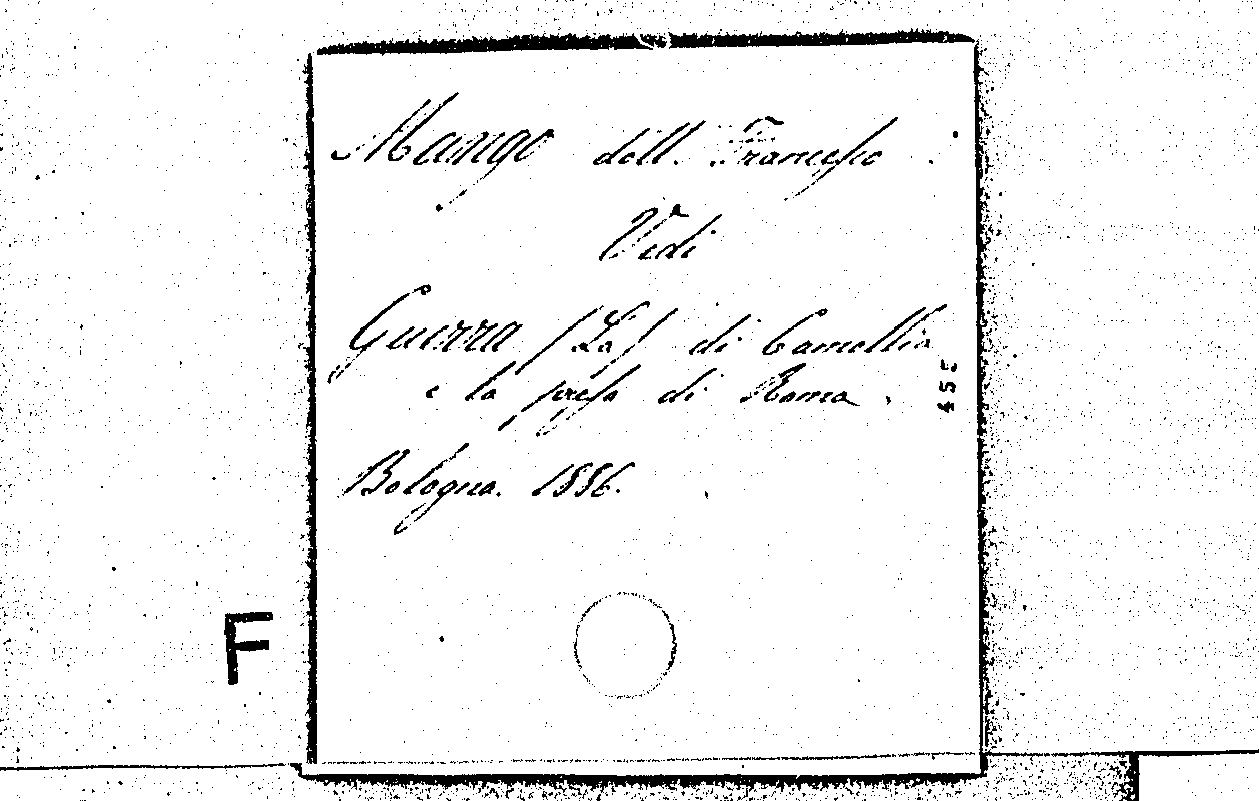 Mango dott. Francesco
Vedi
Guerra (La) di Camollia
e la presa di Roma.
Bologna. 1886.
455
F